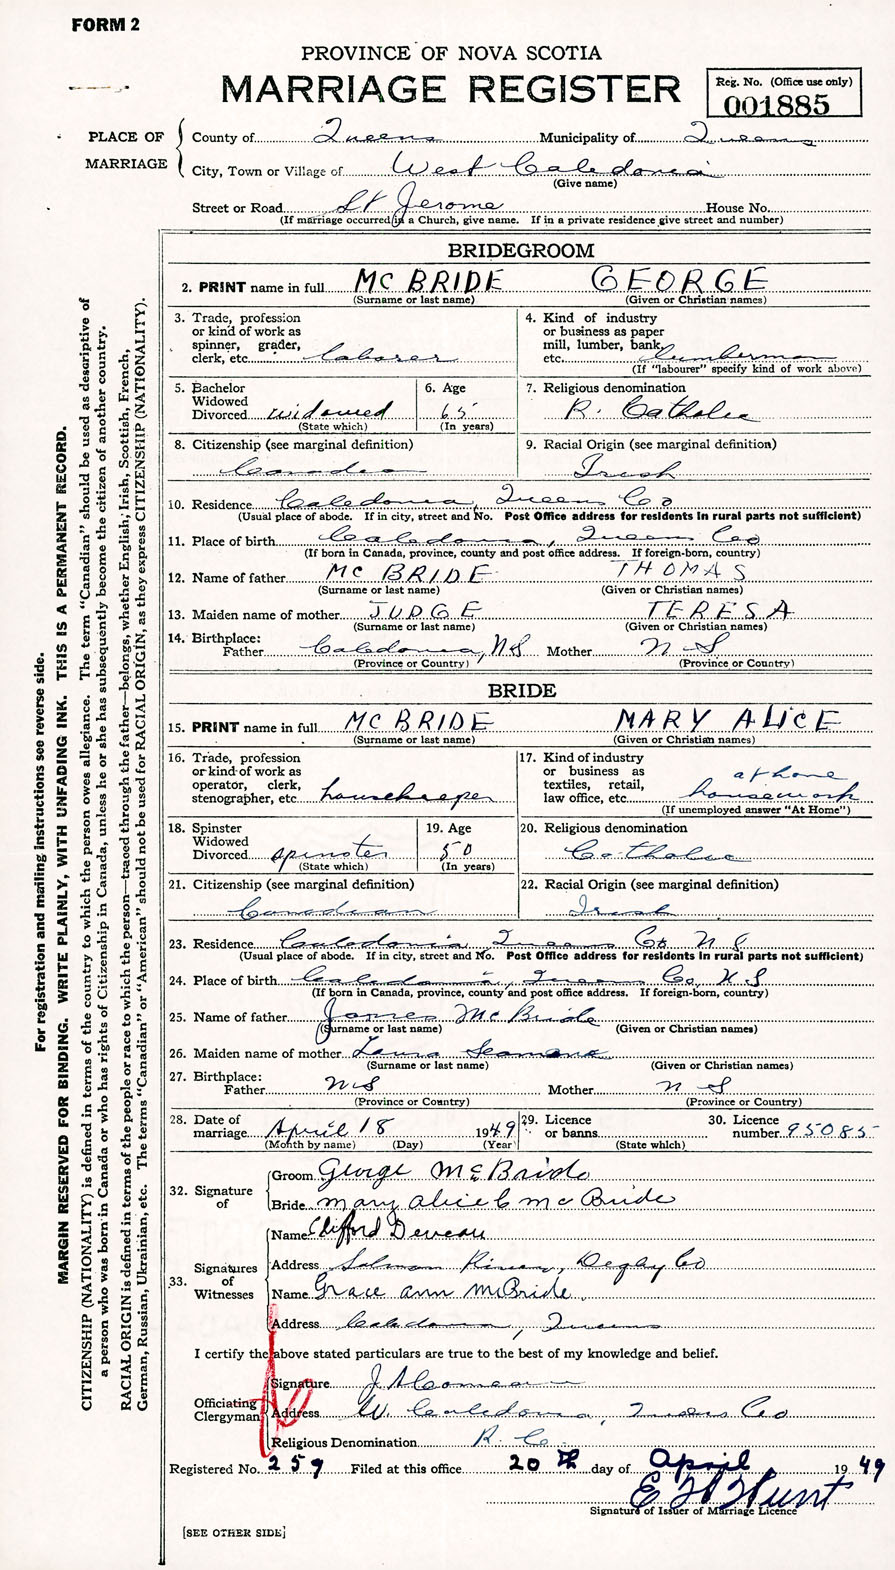 FORM 2
PROVINCE OF NOVA SCOTIA
MARRIAGE REGISTER
Reg. No. (Office use only)
001885
PLACE OF MARRIAGE
County of Queens Municipality of Queens
City, Town or Village of West Caledonia
(Give name)
Street or Road St Jerome House No.
(If marriage occurred in a Church, give name. If in a private residence give street and number)
BRIDEGROOM
2. PRINT name in full McBRIDE GEORGE
(Surname or last name) (Given or Christian names)
3. Trade, profession or kind of work as spinner, grader, clerk, etc. laborer
4. Kind of industry or business as paper mill, lumber, bank, etc. lumberman
(If "labourer" specify kind of work above)
5. Bachelor Widowed Divorced widowed
(State which)
6. Age 65
(In years)
7. Religious denomination
R. Catholic
8. Citizenship (see marginal definition)
Canadian
9. Racial Origin (see marginal definition)
Irish
10. Residence Caledonia, Queens Co
(Usual place of abode. If in city, street and No. Post Office address for residents in rural parts not sufficient)
11. Place of birth Caledonia, Queens Co
(If born in Canada, province, county and post office address. If foreign-born, country)
12. Name of father McBRIDE THOMAS
(Surname or last name) (Given or Christian names)
13. Maiden name of mother JUDGE TERESA
(Surname or last name) (Given or Christian names)
14. Birthplace:
Father Caledonia, NS Mother N S
(Province or Country) (Province or Country)
BRIDE
15. PRINT name in full McBRIDE MARY ALICE
(Surname or last name) (Given or Christian names)
16. Trade, profession or kind of work as operator, clerk, stenographer, etc housekeeper
17. Kind of industry or business as textiles, retail, law office, etc. at home housework
(If unemployed answer "At Home")
18. Spinster Widowed Divorced spinster
(State which)
19. Age 50
(In years)
20. Religious denomination
Catholic
21. Citizenship (see marginal definition)
Canadian
22. Racial Origin (see marginal definition)
Irish
23. Residence Caledonia Queens Co N S
(Usual place of abode. If in city, street and No. Post Office address for residents in rural parts not sufficient)
24. Place of birth Caledonia, Queens Co, N S
(If born in Canada, province, county and post office address. If foreign-born, country)
25. Name of father James McBride
(Surname or last name) (Given or Christian names)
26. Maiden name of mother Laura Seamone
(Surname or last name) (Given or Christian names)
27. Birthplace:
Father N S Mother N S
(Province or Country) (Province or Country)
28. Date of marriage April 18 1949
(Month by name) (Day) (Year)
29. Licence or banns
(State which)
30. Licence number 95085
32. Signature of
Groom George McBride
Bride Mary Alice C McBride
33. Signatures of Witnesses
Name Clifford Deveau
Address Salmon River, Digby Co
Name Grace Ann McBride
Address Caledonia, Queens
I certify the above stated particulars are true to the best of my knowledge and belief.
Officiating Clergyman
Signature J A Comeau
Address W. Caledonia, Queens Co
Religious Denomination R. C.
Registered No. 259 Filed at this office 20th day of April 1949
E H Hunt
Signature of Issuer of Marriage Licence
[SEE OTHER SIDE]
For registration and mailing instructions see reverse side.
MARGIN RESERVED FOR BINDING. WRITE PLAINLY, WITH UNFADING INK. THIS IS A PERMANENT RECORD.
CITIZENSHIP (NATIONALITY) is defined in terms of the country to which the person owes allegiance. The term "Canadian" should be used as descriptive of
a person who was born in Canada or who has rights of Citizenship in Canada, unless he or she has subsequently become the citizen of another country.
RACIAL ORIGIN is defined in terms of the people or race to which the person—traced through the father—belongs, whether English, Irish, Scottish, French,
German, Russian, Ukrainian, etc. The terms "Canadian" or "American" should not be used for RACIAL ORIGIN, as they express CITIZENSHIP (NATIONALITY).